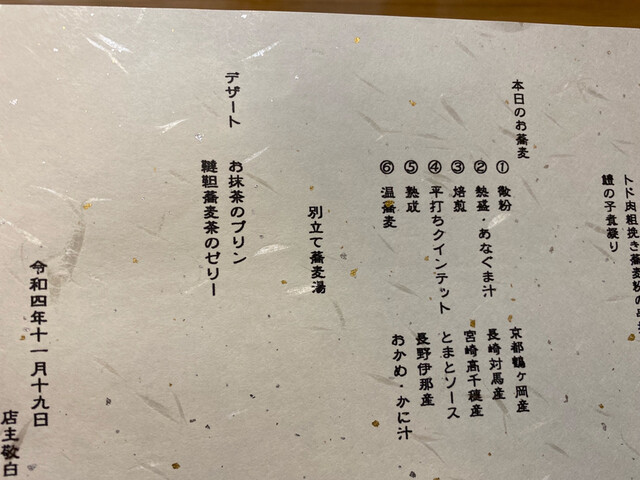 トド肉粗挽き蕎麦粉の
鱧の子煮凝り
本日のお蕎麦
① 微粉 京都鶴ヶ岡産
② 熱盛・あなぐま汁 長崎対馬産
③ 焙煎 宮崎高千穂産
④ 平打ちクインテット とまとソース
⑤ 熟成 長野伊那産
⑥ 温蕎麦 おかめ・かに汁
別立て蕎麦湯
デザート
お抹茶のプリン
韃靼蕎麦茶のゼリー
令和四年十一月十九日
店主敬白